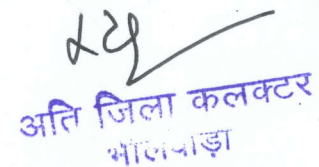 अति जिला कलक्टर
भीलवाड़ा